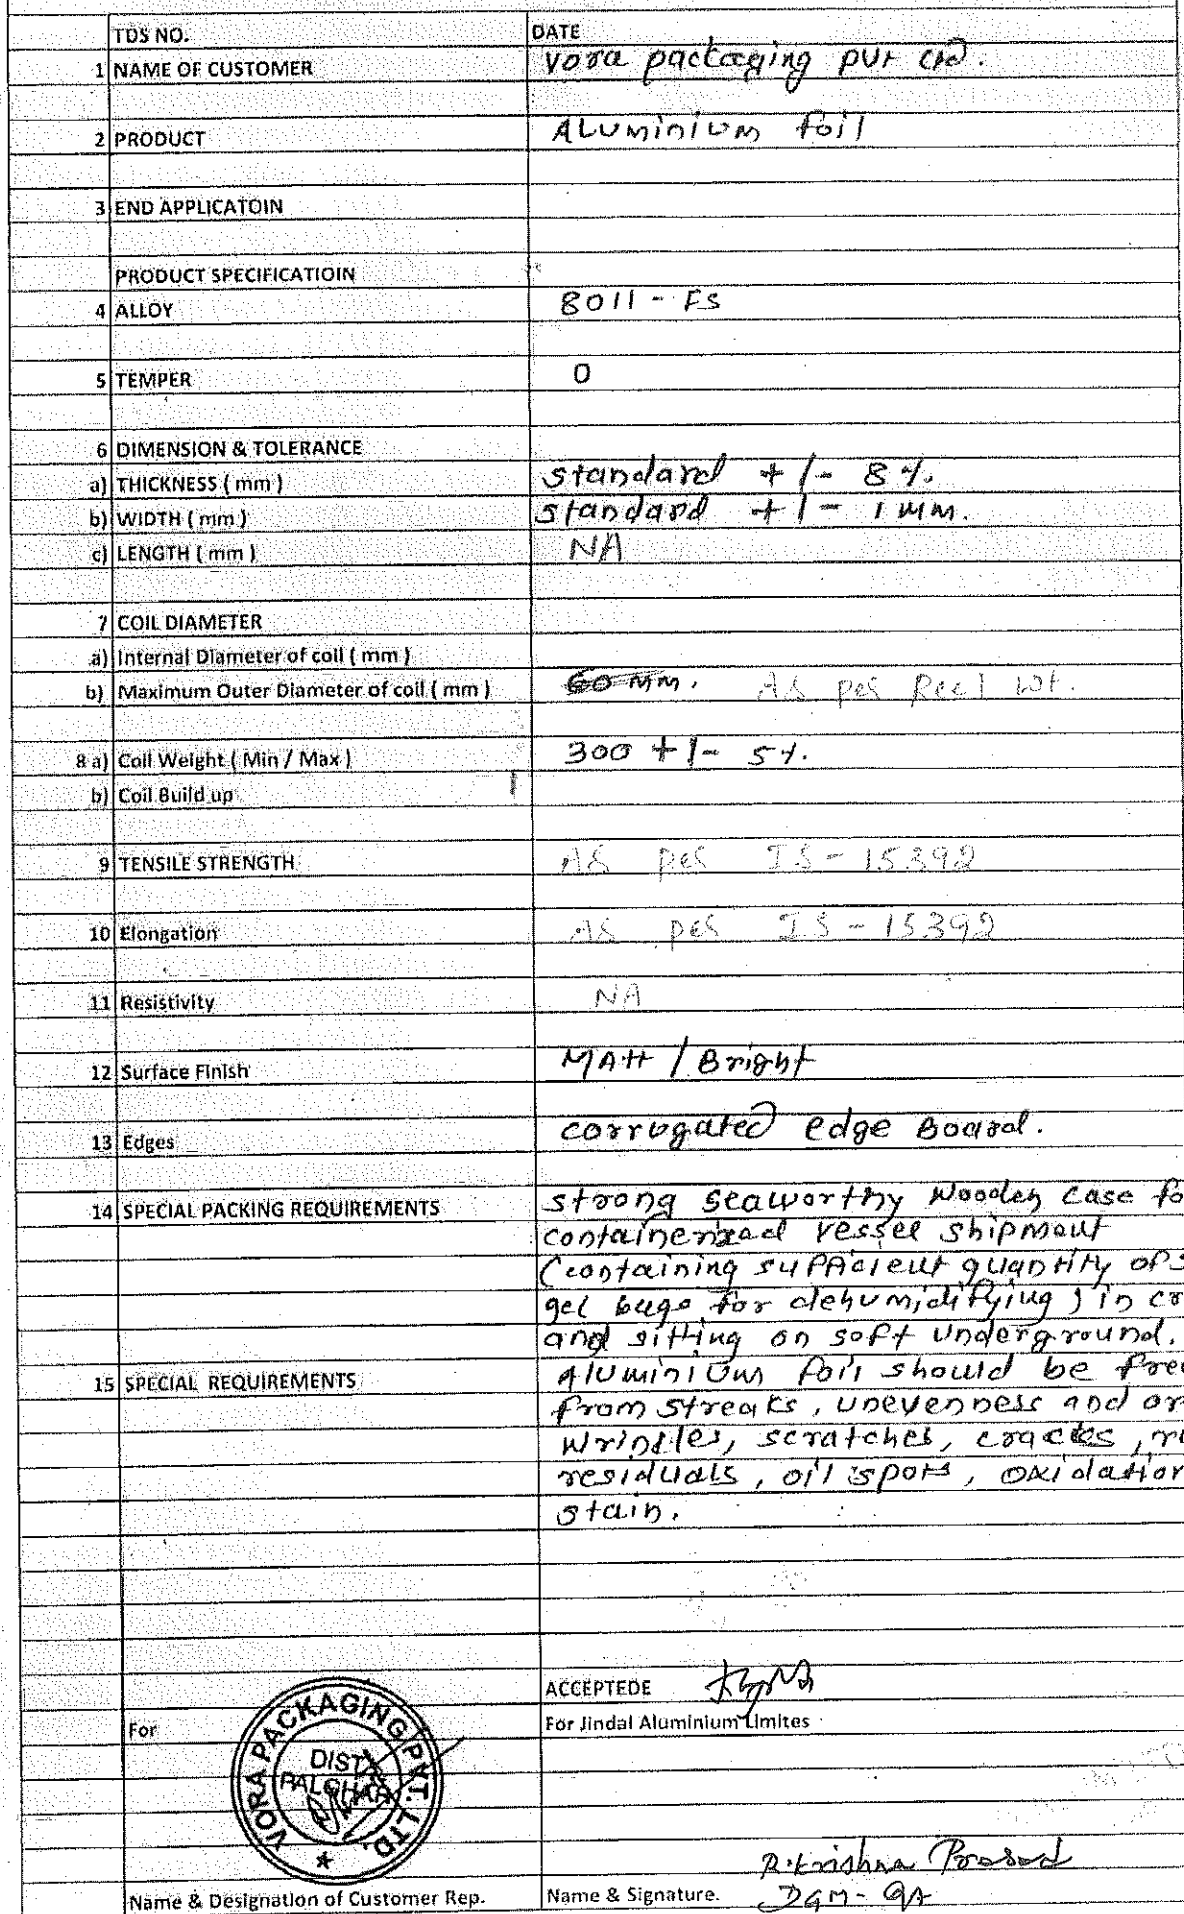 TDS NO. DATE
1 NAME OF CUSTOMER vora packaging pvt Ltd.
2 PRODUCT ALuminium foil
3 END APPLICATOIN
PRODUCT SPECIFICATIOIN
4 ALLOY 8011 - FS
5 TEMPER O
6 DIMENSION & TOLERANCE
a) THICKNESS ( mm ) standard +/- 8 %.
b) WIDTH ( mm ) standard +/- 1 mm.
c) LENGTH ( mm ) NA
7 COIL DIAMETER
a) Internal Diameter of coil ( mm )
b) Maximum Outer Diameter of coil ( mm ) 60 mm. As per Reel wt.
8 a) Coil Weight ( Min / Max ) 300 +/- 5%.
b) Coil Build up
9 TENSILE STRENGTH As per IS - 15392
10 Elongation As per IS - 15392
11 Resistivity NA
12 Surface Finish MAtt / Bright
13 Edges corrugated edge Board.
14 SPECIAL PACKING REQUIREMENTS strong seaworthy wooden case fo
containerized vessel shipment
(containing sufficient quantity of s
gel bags for dehumidifying) in cr
and sitting on soft underground.
15 SPECIAL REQUIREMENTS Aluminium foil should be free
from streaks, unevenness and or
wrinkles, scratches, cracks, ru
residuals, oil spots, oxidation
stain.
ACCEPTEDE
For For Jindal Aluminium Limites
VORA PACKAGING PVT. LTD.
DIST
PALGHAR
R. Krishna Prasad
Name & Designation of Customer Rep. Name & Signature. DGM - QA